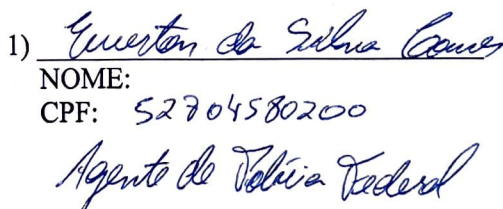 1) Everton da Silva Gomes
NOME:
CPF: 52704580200
Agente de Polícia Federal